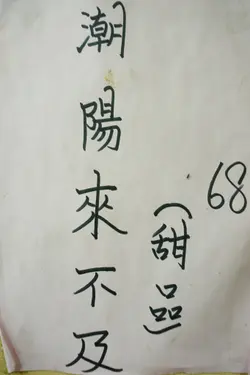 潮陽來不及
(甜品)
68